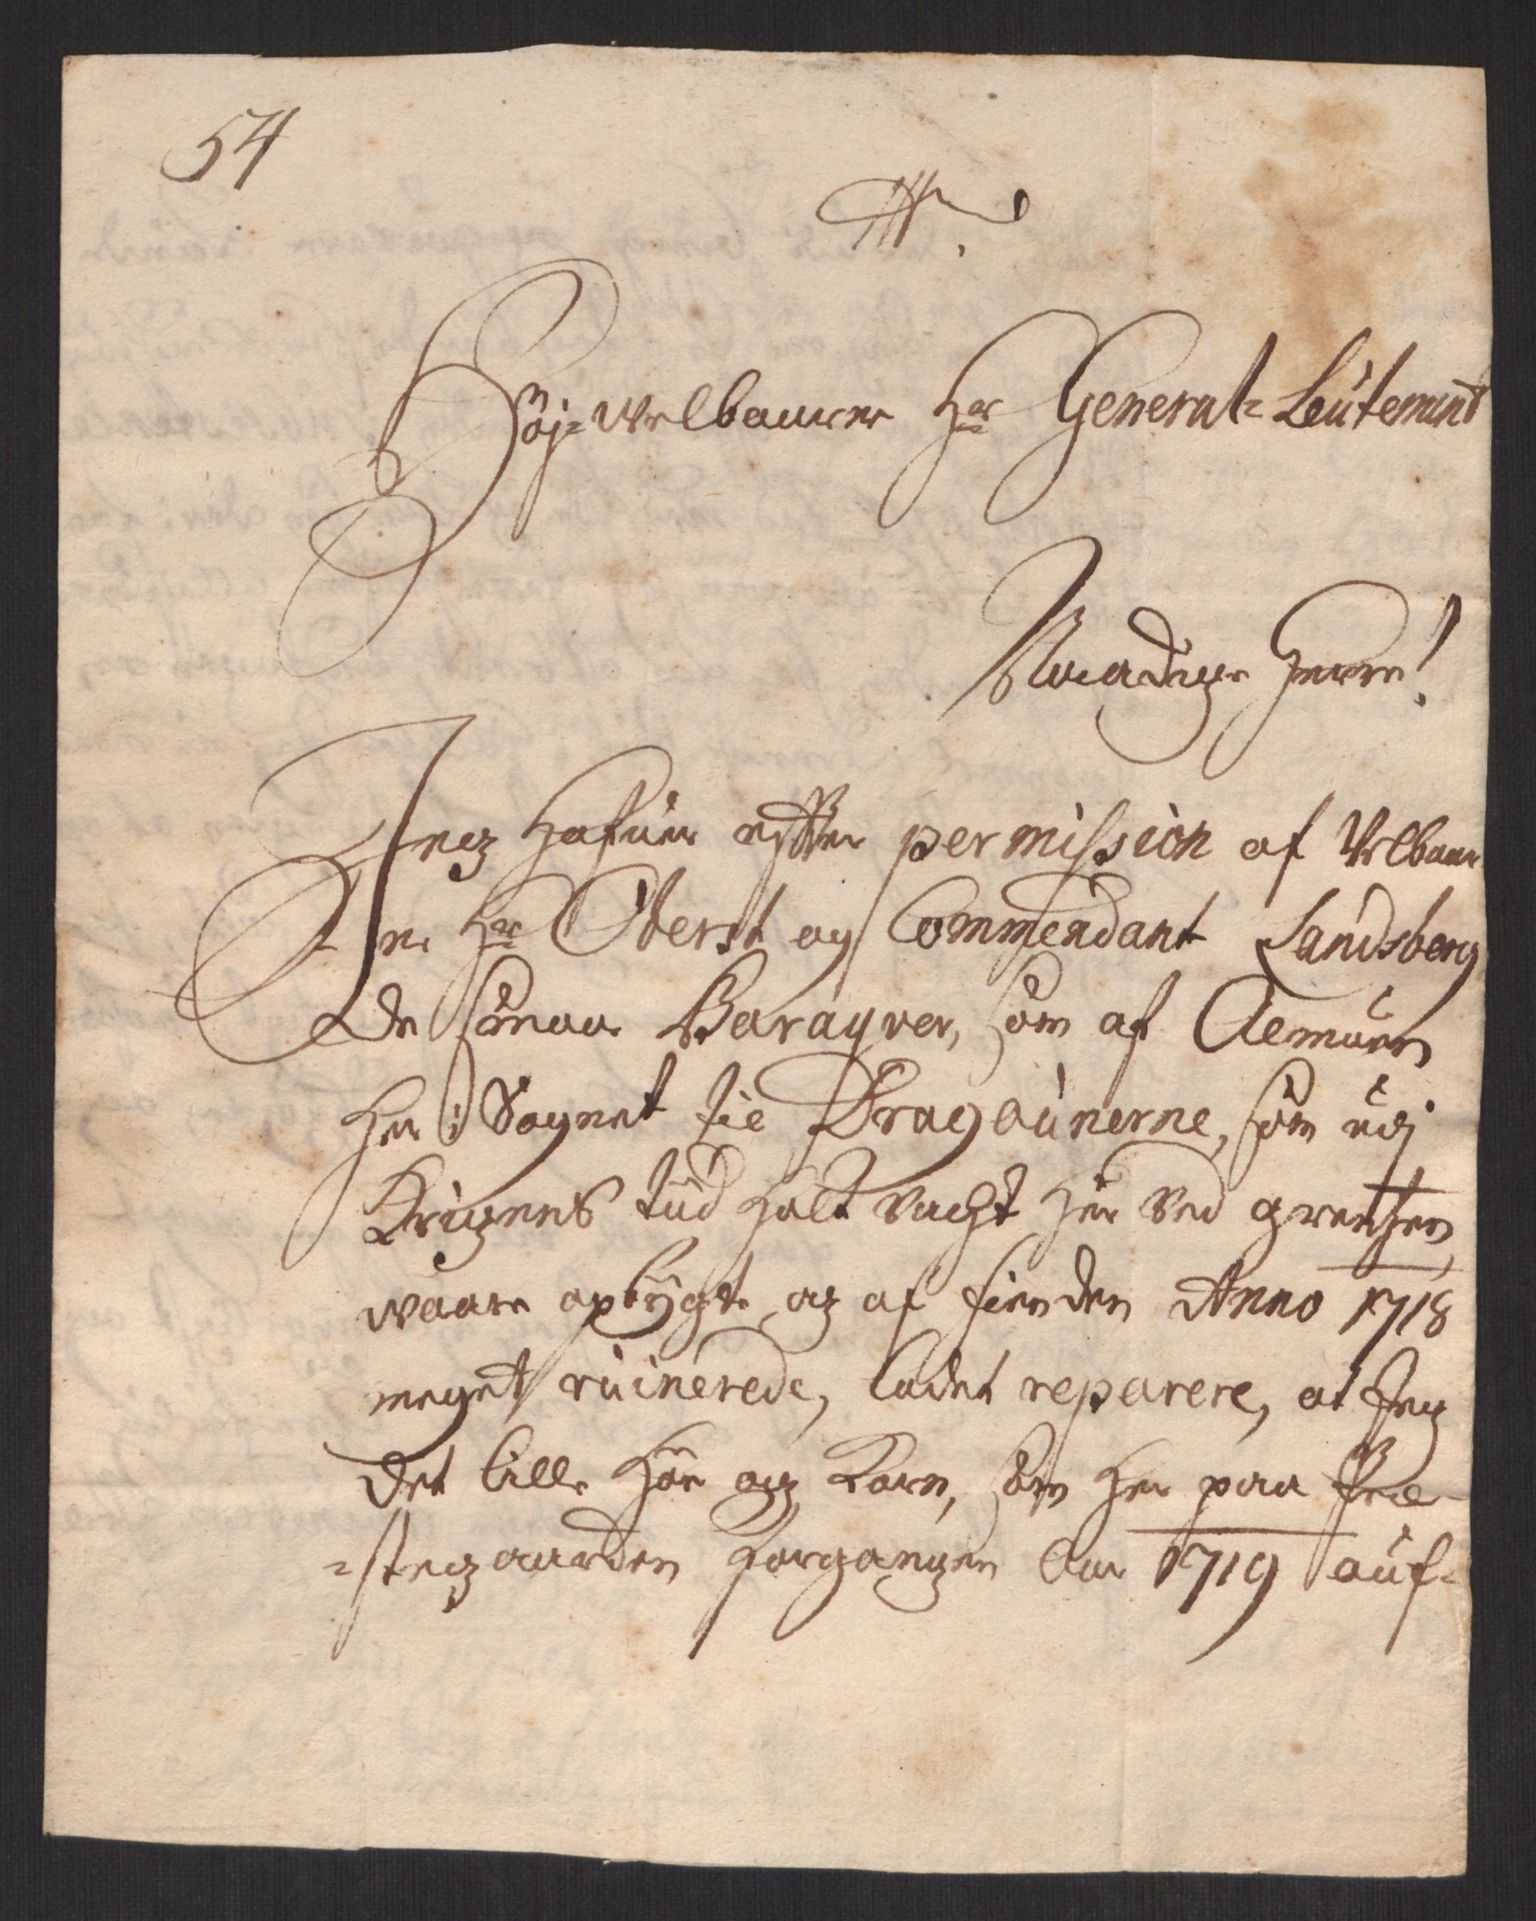 54
Höj-Welbaarne Hr General-Leutenent
Naadige Herre!
Jeg hafuer effter permission af Welbaar
ne Hr Oberst og Commendant Landsberg
de smaa Baraqver, som af Almuen
her i Sognet til Dragounerne, som udj
Krigens tiid holt Vacht her ved grentzen,
waare opbygte, og af fienden Anno 1718
meget ruinerede, ladet reparere, at Jeg
det lille Höe og Korn, som her paa Præ-
-stegaarden forgangen Aar 1719 auf-